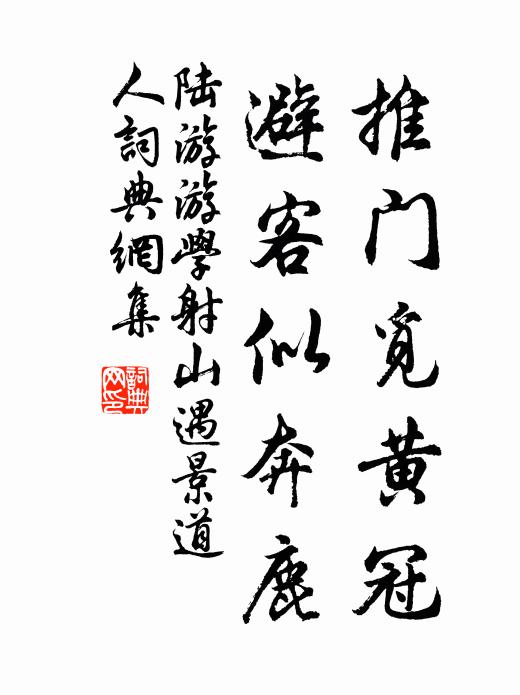 推门觅黄冠
避客似奔鹿
陆游游學射山遇景道
人詞典網集
詞典网印